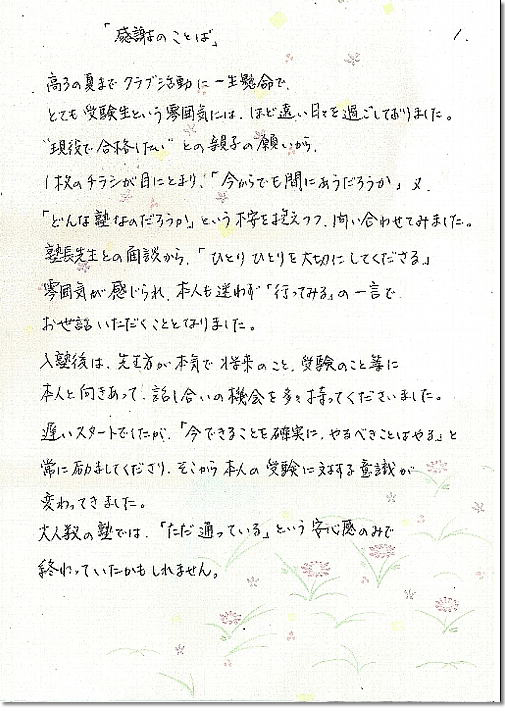 「感謝のことば」 1.
高3の夏まで クラブ活動に一生懸命で、
とても受験生という雰囲気には、ほど遠い日々を過ごしておりました。
"現役で合格したい" との親子の願いから、
1枚のチラシが目にとまり、「今からでも間にあうだろうか」又、
「どんな塾なのだろうか」という不安を抱えつつ、問い合わせてみました。
塾長先生との面談から、「ひとりひとりを大切にしてくださる」
雰囲気が感じられ、本人も迷わず「行ってみる」の一言で
お世話いただくこととなりました。
入塾後は、先生方が本気で将来のこと、受験のこと等に
本人と向きあって、話し合いの機会を多く持ってくださいました。
遅いスタートでしたが、「今できることを確実に、やるべきことはやる」と
常に励ましてくださり、そこから本人の受験に対する意識が
変わってきました。
大人数の塾では、「ただ通っている」という安心感のみで
終わっていたかもしれません。